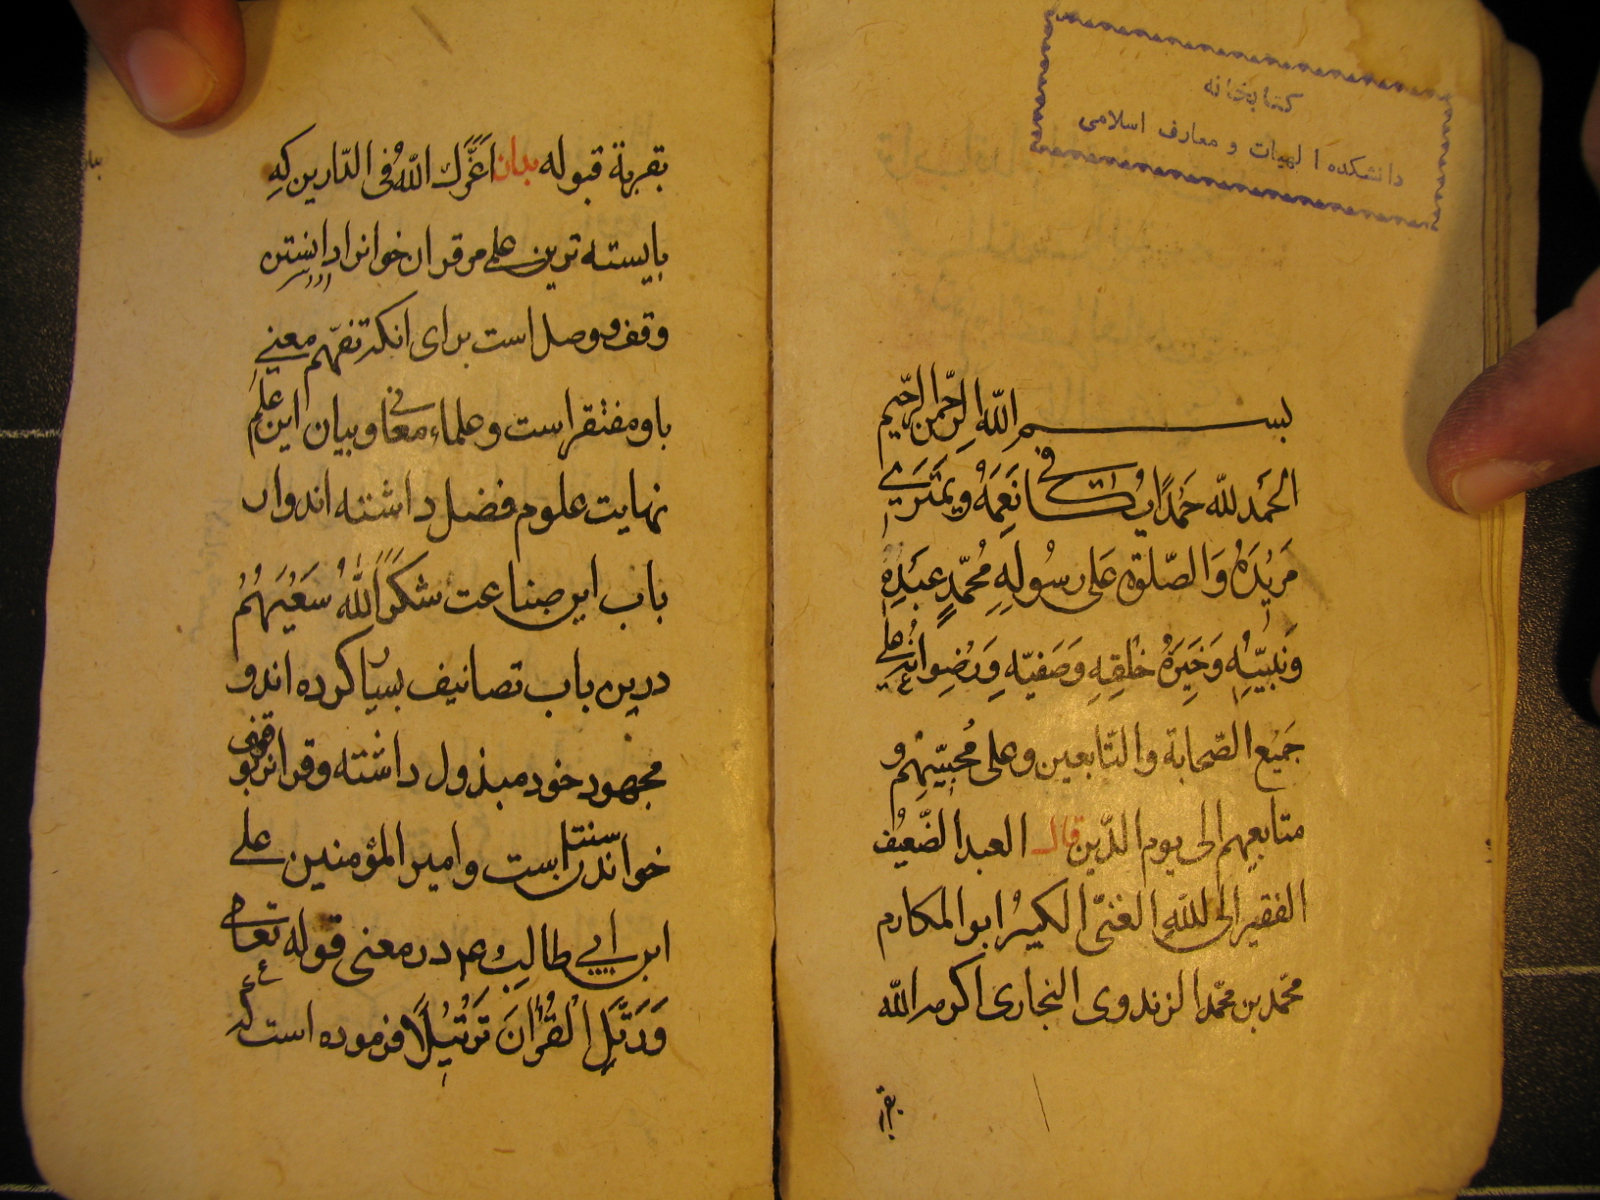 كتابخانه
دانشكده الهيات و معارف اسلامى
بسم الله الرحمن الرحيم
الحَمد لله حَمدًا يُكافى نِعَمَهُ ويمتَرى
مَزيدَهُ وَالصّلوة عَلى رسُولِهِ مُحمّدٍ عَبدِهِ
وَنَبيّهِ وَخِيَرَةِ خَلقِهِ وَصَفيّهِ وَرِضوانه على
جَميع الصّحابة والتّابعين وعلى مُحبّيهِم و
متابعيهم الى يوم الدّين قال العبد الضّعيف
الفقير الى الله الغنىّ الكبير ابو المكارم
محمّد بن محمّد الزندوى البخارى اكرمه الله
بقربة
بقربة قبوله بدان اعَزّك اللّهُ فى الدّارين كه
بايسته ترين علمى مر قران خوانرا دانستن
وقف و وصل است براى انكه تفهّم معنى
باو مفتقر است و علماء معانى و بيان اين علم
نهايت علوم فضل داشته اند و ار
باب اين صناعت شكرَ اللّهُ سَعْيَهُمْ
درين باب تصانيف بسيار كرده اند و
مجهود خود مبذول داشته و قرانرا بوقوف
خواندن سنت است و امير المؤمنين على
ابن ابى طالب ع م در معنى قوله تعالى
وَرَتِّلِ الْقُرْآنَ تَرْتيلًا فرموده است كه